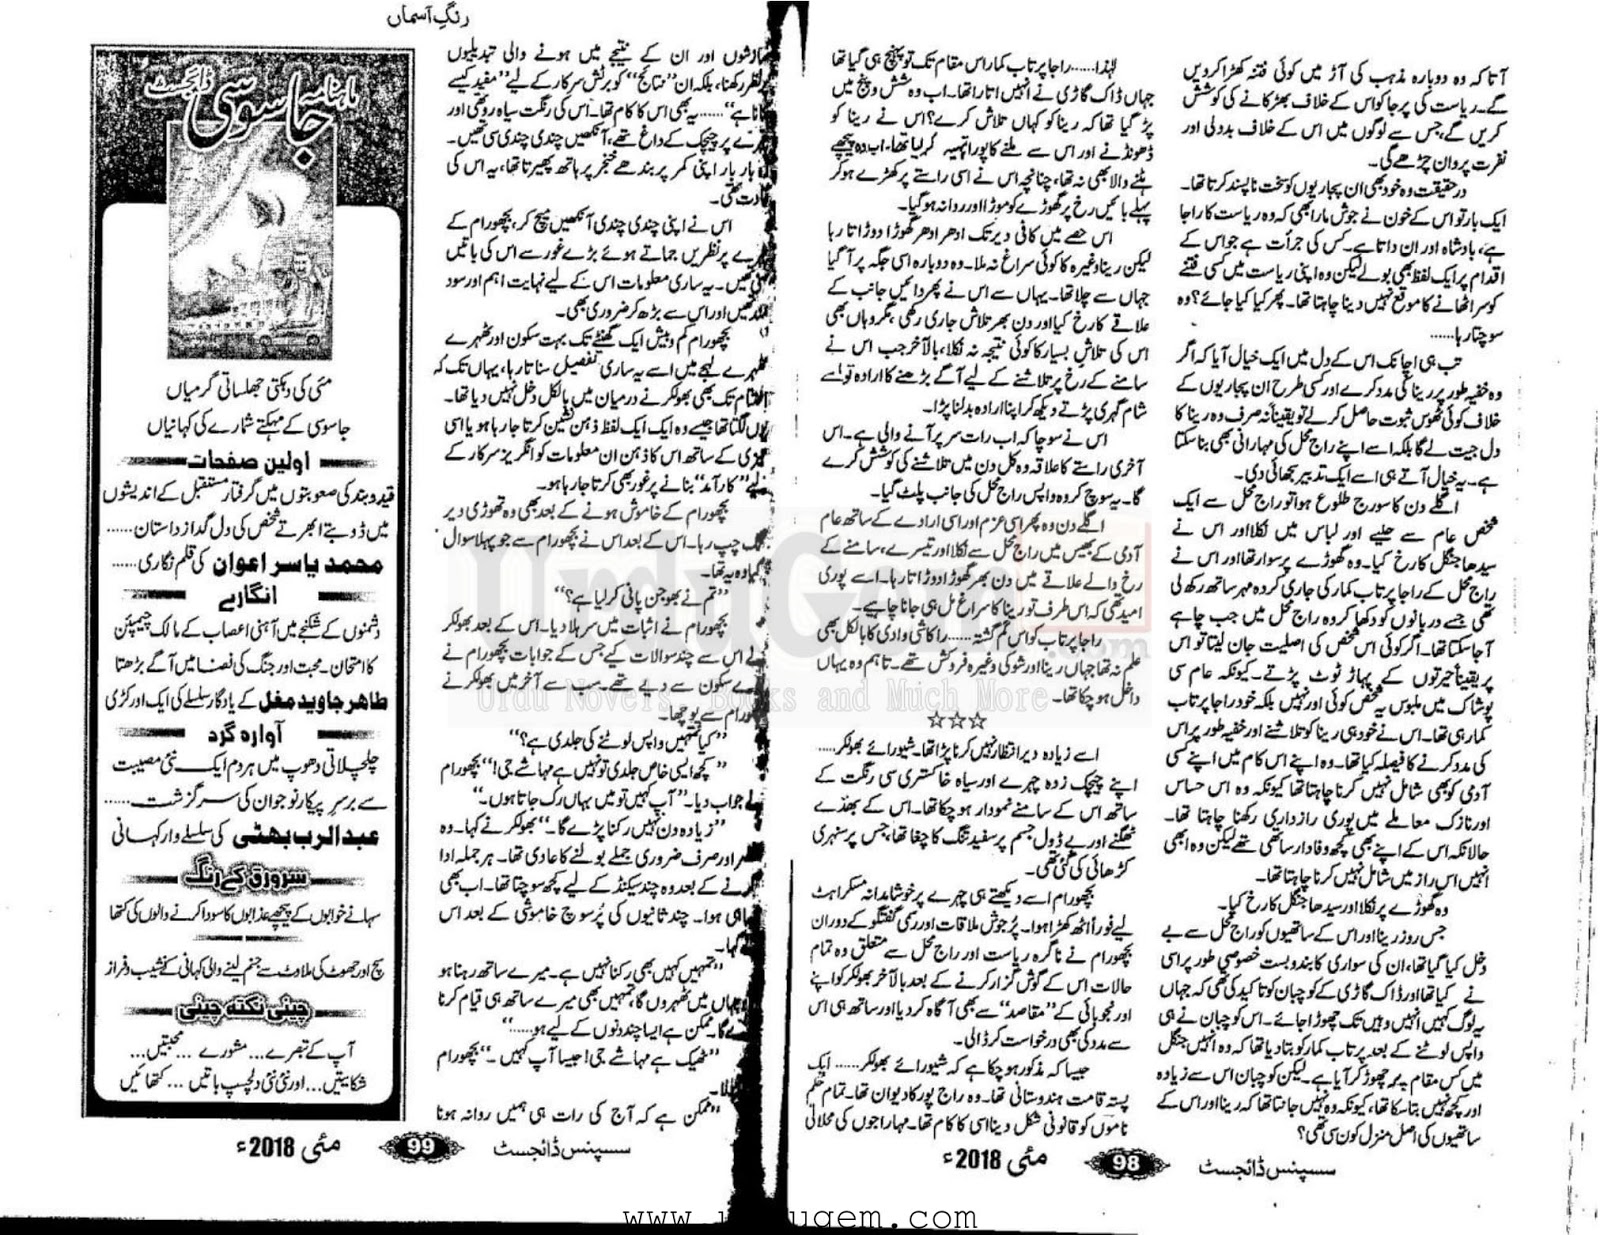 آتا کہ وہ دوبارہ مذہب کی آڑ میں کوئی فتنہ کھڑا کر دیں
گے۔ ریاست کی پرجا کو اس کے خلاف بھڑکانے کی کوشش
کریں گے، جس سے لوگوں میں اس کے خلاف بددلی اور
نفرت پروان چڑھے گی۔
درحقیقت وہ خود بھی ان پجاریوں کو سخت ناپسند کرتا تھا۔
ایک بار تو اس کے خون نے جوش مارا بھی کہ وہ ریاست کا راجا
ہے، بادشاہ اور ان داتا ہے۔ کس کی جرأت ہے جو اس کے
اقدام پر ایک لفظ بھی بولے لیکن وہ اپنی ریاست میں کسی فتنے
کو سر اٹھانے کا موقع نہیں دینا چاہتا تھا۔ پھر کیا کیا جائے؟ وہ
سوچتا رہا......
تب ہی اچانک اس کے دل میں ایک خیال آیا کہ اگر
وہ خفیہ طور پر رینا کی مدد کرے اور کسی طرح ان پجاریوں کے
خلاف کوئی ٹھوس ثبوت حاصل کر لے تو یقیناً نہ صرف وہ رینا کا
دل جیت لے گا بلکہ اسے اپنے راج محل کی مہارانی بھی بنا سکتا
ہے۔ یہ خیال آتے ہی اسے ایک تدبیر سجھائی دی۔
اگلے دن کا سورج طلوع ہوا تو راج محل سے ایک
شخص عام سے حلیے اور لباس میں نکلا اور اس نے
سیدھا جنگل کا رخ کیا۔ وہ گھوڑے پر سوار تھا اور اس نے
راج محل کے راجا پرتاب کمار کی جاری کردہ مہر ساتھ رکھ لی
تھی جسے دربانوں کو دکھا کر وہ راج محل میں جب چاہے
آ جا سکتا تھا۔ اگر کوئی اس شخص کی اصلیت جان لیتا تو اس
پر یقیناً حیرتوں کے پہاڑ ٹوٹ پڑتے۔ کیونکہ عام سی
پوشاک میں ملبوس یہ شخص کوئی اور نہیں بلکہ خود راجا پرتاب
کمار ہی تھا۔ اس نے خود ہی رینا کو تلاشنے اور خفیہ طور پر اس
کی مدد کرنے کا فیصلہ کیا تھا۔ وہ اپنے اس کام میں اپنے کسی
آدمی کو بھی شامل نہیں کرنا چاہتا تھا کیونکہ وہ اس حساس
اور نازک معاملے میں پوری رازداری رکھنا چاہتا تھا۔
حالانکہ اس کے اپنے بھی کچھ وفادار ساتھی تھے لیکن وہ ابھی
انہیں اس راز میں شامل نہیں کرنا چاہتا تھا۔
وہ گھوڑے پر نکلا اور سیدھا جنگل کا رخ کیا۔
جس روز رینا اور اس کے ساتھیوں کو راج محل سے بے
دخل کیا گیا تھا، ان کی سواری کا بندوبست خصوصی طور پر اسی
نے کیا تھا اور ڈاک گاڑی کے کوچبان کو تاکید کی تھی کہ جہاں
یہ لوگ کہیں انہیں وہیں تک چھوڑا جائے۔ اس کوچبان نے ہی
واپس لوٹنے کے بعد پرتاب کمار کو بتا دیا تھا کہ وہ انہیں جنگل
میں کس مقام پہ چھوڑ کر آیا ہے۔ لیکن کوچبان اس سے زیادہ
اور کچھ نہیں بتا سکا تھا، کیونکہ وہ نہیں جانتا تھا کہ رینا اور اس کے
ساتھیوں کی اصل منزل کون سی تھی؟
لہٰذا...... راجا پرتاب کمار اس مقام تک تو پہنچ ہی گیا تھا
جہاں ڈاک گاڑی نے انہیں اتارا تھا۔ اب وہ شش و پنج میں
پڑ گیا تھا کہ رینا کو کہاں تلاش کرے؟ اس نے رینا کو
ڈھونڈنے اور اس سے ملنے کا پورا تہیہ کر لیا تھا۔ اب وہ پیچھے
ہٹنے والا بھی نہ تھا، چنانچہ اس نے اسی راستے پر کھڑے ہو کر
پہلے بائیں رخ پر گھوڑے کو موڑا اور روانہ ہو گیا۔
اس حصے میں کافی دیر تک ادھر ادھر گھوڑا دوڑاتا رہا
لیکن رینا وغیرہ کا کوئی سراغ نہ ملا۔ وہ دوبارہ اسی جگہ پر آ گیا
جہاں سے چلا تھا۔ یہاں سے اس نے پھر دائیں جانب کے
علاقے کا رخ کیا اور دن بھر تلاش جاری رکھی، مگر وہاں بھی
اس کی تلاشِ بسیار کا کوئی نتیجہ نہ نکلا، بالآخر جب اس نے
سامنے کے رخ پر تلاشنے کے لیے آگے بڑھنے کا ارادہ تو اسے
شام گہری پڑتے دیکھ کر اپنا ارادہ بدلنا پڑا۔
اس نے سوچا کہ اب رات سر پر آنے والی ہے۔ اس
آخری راستے کا علاقہ وہ کل دن میں تلاشنے کی کوشش کرے
گا۔ یہ سوچ کر وہ واپس راج محل کی جانب پلٹ گیا۔
اگلے دن وہ پھر اسی عزم اور اسی ارادے کے ساتھ عام
آدمی کے بھیس میں راج محل سے نکلا اور تیسرے، سامنے کے
رخ والے علاقے میں دن بھر گھوڑا دوڑاتا رہا۔ اسے پوری
امید تھی کہ اس طرف تو رینا کا سراغ مل ہی جانا چاہیے۔
راجا پرتاب کو اس گم گشتہ...... راکاشی وادی کا بالکل بھی
علم نہ تھا جہاں رینا اور شوکی وغیرہ فروکش تھے۔ تاہم وہ یہاں
داخل ہو چکا تھا۔
☆☆☆
اسے زیادہ دیر انتظار نہیں کرنا پڑا تھا۔ شیورائے بھولکر......
اپنے چیچک زدہ چہرے اور سیاہ خاکستری سی رنگت کے
ساتھ اس کے سامنے نمودار ہو چکا تھا۔ اس کے بھدے
ٹھگنے اور بے ڈول جسم پر سفید رنگ کا چغا تھا، جس پر سنہری
کڑھائی کی گئی تھی۔
بچھورام اسے دیکھتے ہی چہرے پر خوشامدانہ مسکراہٹ
لیے فوراً اٹھ کھڑا ہوا۔ پُرجوش ملاقات اور رسمی گفتگو کے دوران
بچھورام نے ناگرہ ریاست اور راج محل سے متعلق وہ تمام
حالات اس کے گوش گزار کرنے کے بعد بالآخر بھولکر کو اپنے
اور نجوبائی کے ”مقاصد“ سے بھی آگاہ کر دیا اور ساتھ ہی اس
سے مدد کی بھی درخواست کر ڈالی۔
جیسا کہ مذکور ہو چکا ہے کہ شیورائے بھولکر...... ایک
پستہ قامت ہندوستانی تھا۔ وہ راج پور کا دیوان تھا۔ تمام حکم
ناموں کو قانونی شکل دینا اسی کا کام تھا۔ مہاراجوں کی محلاتی
سسپنس ڈائجسٹ 98 مئی 2018ء
رنگِ آسماں
سازشوں اور ان کے نتیجے میں ہونے والی تبدیلیوں
پر نظر رکھنا، بلکہ ان ”نتائج“ کو برٹش سرکار کے لیے ”مفید کیسے
بنانا ہے“...... یہ بھی اس کا کام تھا۔ اس کی رنگت سیاہ رو تھی اور
چہرے پر چیچک کے داغ تھے، آنکھیں چندی چندی سی تھیں۔
وہ بار بار اپنی کمر پر بندھے خنجر پر ہاتھ پھیرتا تھا، یہ اس کی
عادت تھی۔
اس نے اپنی چندی چندی آنکھیں میچ کر، بچھورام کے
چہرے پر نظریں جماتے ہوئے بڑے غور سے اس کی باتیں
سنی تھیں۔ یہ ساری معلومات اس کے لیے نہایت اہم اور سود
مند تھیں اور اس سے بڑھ کر ضروری بھی۔
بچھورام کم و بیش ایک گھنٹے تک بہت سکون اور ٹھہرے
ٹھہرے لہجے میں اسے یہ ساری تفصیل سناتا رہا، یہاں تک کہ
اختتام تک بھی بھولکر نے درمیان میں بالکل دخل نہیں دیا تھا۔
یوں لگتا تھا جیسے وہ ایک ایک لفظ ذہن نشین کرتا جا رہا ہو یا اسی
گھڑی کے ساتھ اس کا ذہن ان معلومات کو انگریز سرکار کے
لیے ”کارآمد“ بنانے پر غور بھی کرتا جا رہا ہو۔
بچھورام کے خاموش ہونے کے بعد بھی وہ تھوڑی دیر
تک چپ رہا۔ اس کے بعد اس نے بچھورام سے جو پہلا سوال
کیا وہ یہ تھا۔
”تم نے بھوجن پانی کر لیا ہے؟“
بچھورام نے اثبات میں سر ہلا دیا۔ اس کے بعد بھولکر
نے اس سے چند سوالات کیے جس کے جوابات بچھورام نے
بڑے سکون سے دیے تھے۔ سب سے آخر میں بھولکر نے
بچھورام سے پوچھا۔
”کیا تمہیں واپس لوٹنے کی جلدی ہے؟“
”کچھ ایسی خاص جلدی تو نہیں ہے مہاشے جی!“ بچھورام
نے جواب دیا۔ ”آپ کہیں تو میں یہاں رک جاتا ہوں۔“
”زیادہ دن نہیں رکنا پڑے گا۔“ بھولکر نے کہا۔ وہ
مختصر اور صرف ضروری جملے بولنے کا عادی تھا۔ ہر جملہ ادا
کرنے کے بعد وہ چند سیکنڈ کے لیے کچھ سوچتا تھا۔ اب بھی
ایسا ہی ہوا۔ چند ثانیوں کی پُرسوچ خاموشی کے بعد اس
نے کہا۔
”تمہیں کہیں بھی رکنا نہیں ہے۔ میرے ساتھ رہنا ہو
جہاں میں ٹھہروں گا، تمہیں بھی میرے ساتھ ہی قیام کرنا
ہو گا۔ ممکن ہے ایسا چند دنوں کے لیے ہو......“
”ٹھیک ہے مہاشے جی! جیسا آپ کہیں۔“ بچھورام
بولا۔
”ممکن ہے کہ آج کی رات ہی ہمیں روانہ ہونا
ماہنامہ جاسوسی ڈائجسٹ
مئی کی دہکتی جھلساتی گرمیاں
جاسوسی کے مہکتے شمارے کی کہانیاں
اولین صفحات
قید و بند کی صعوبتوں میں گرفتار مستقبل کے اندیشوں
میں ڈوبتے ابھرتے شخص کی دل گداز داستان......
محمد یاسر اعوان کی قلم نگاری......
انگارے
دشمنوں کے شکنجے میں آہنی اعصاب کے مالک چیمپئن
کا امتحان۔ محبت اور جنگ کی فضا میں آگے بڑھتا
طاہر جاوید مغل کے یادگار سلسلے کی ایک اور کڑی
آوارہ گرد
چلچلاتی دھوپ میں ہر دم ایک نئی مصیبت
سے برسر پیکار نوجوان کی سرگزشت......
عبدالرب بھٹی کی سلسلے وار کہانی
سرورق کے رنگ
سہانے خوابوں کے پیچھے عذابوں کا سودا کرنے والوں کی کتھا
سچ اور جھوٹ کی ملاوٹ سے جنم لینے والی کہانی کے نشیب و فراز
چینی نکتہ چینی
آپ کے تبصرے... مشورے... محبتیں...
شکایتیں... اور نئی نئی دلچسپ باتیں... کتھائیں
سسپنس ڈائجسٹ 99 مئی 2018ء
UrduGem.com
Urdu Novels, Books and Much More
www.urdugem.com